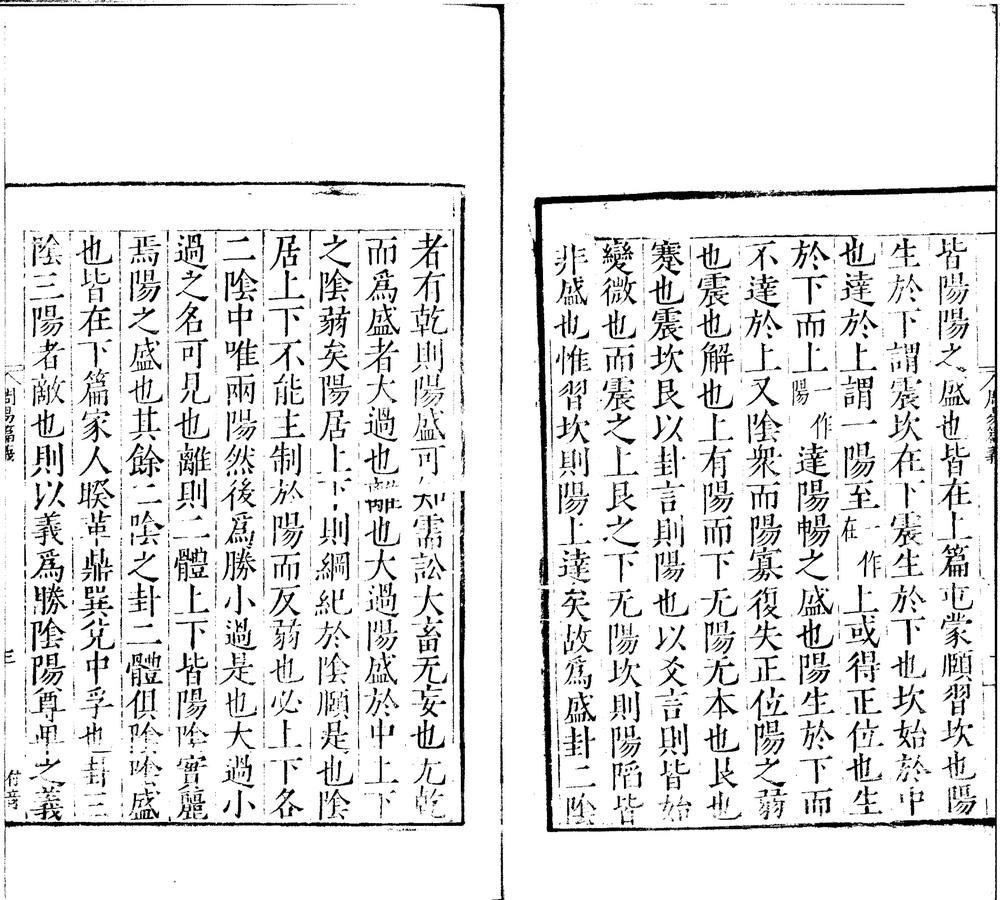 皆陽陽之盛也皆在上篇屯蒙頤習坎也陽
生於下謂震坎在下震生於下也坎始於中
也達於上謂一陽至一作在上或得正位也生
於下而上一作陽達陽暢之盛也陽生於下而
不達於上又陰衆而陽寡復失正位陽之弱
也震也解也上有陽而下无陽无本也艮也
蹇也震坎艮以卦言則陽也以爻言則皆始
變微也而震之上艮之下无陽坎則陽陷皆
非盛也惟習坎則陽上達矣故爲盛卦二陰
者有乾則陽盛可知需訟大畜无妄也无乾
而爲盛者大過也離也大過陽盛於中上下
之陰弱矣陽居上下則綱紀於陰頤是也陰
居上下不能主制於陽而反弱也必上下各
二陰中唯兩陽然後爲勝小過是也大過小
過之名可見也離則二體上下皆陽陰實麗
焉陽之盛也其餘二陰之卦二體俱陰陰盛
也皆在下篇家人睽革鼎巽兌中孚也卦三
陰三陽者敵也則以義爲勝陰陽尊卑之義
周易篇義
三